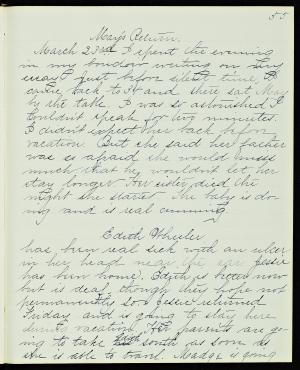 55
May's Return.
March 23rd I spent the evening
in my boudoir writing on my
essay. Just before silent time, I
came back to it and there sat May
by the table. I was so astonished I
couldn't speak for two minutes.
I didn't expect her back before
vacation. But she said her father
was so afraid she would miss
much that he wouldn't let her
stay longer. Her sister died the
night she started. The baby is do-
ing and is real cunning
Edith Wheeler
has been real sick with an ulcer
in her head near the ear. Jessie
has been home. Edith is better now
but is deaf, though they hope not
permanently so. Jessie returned
Friday and is going to stay here
during vacation. Her parents are go-
ing to take south as soon as
she is able to travel. Madge is going